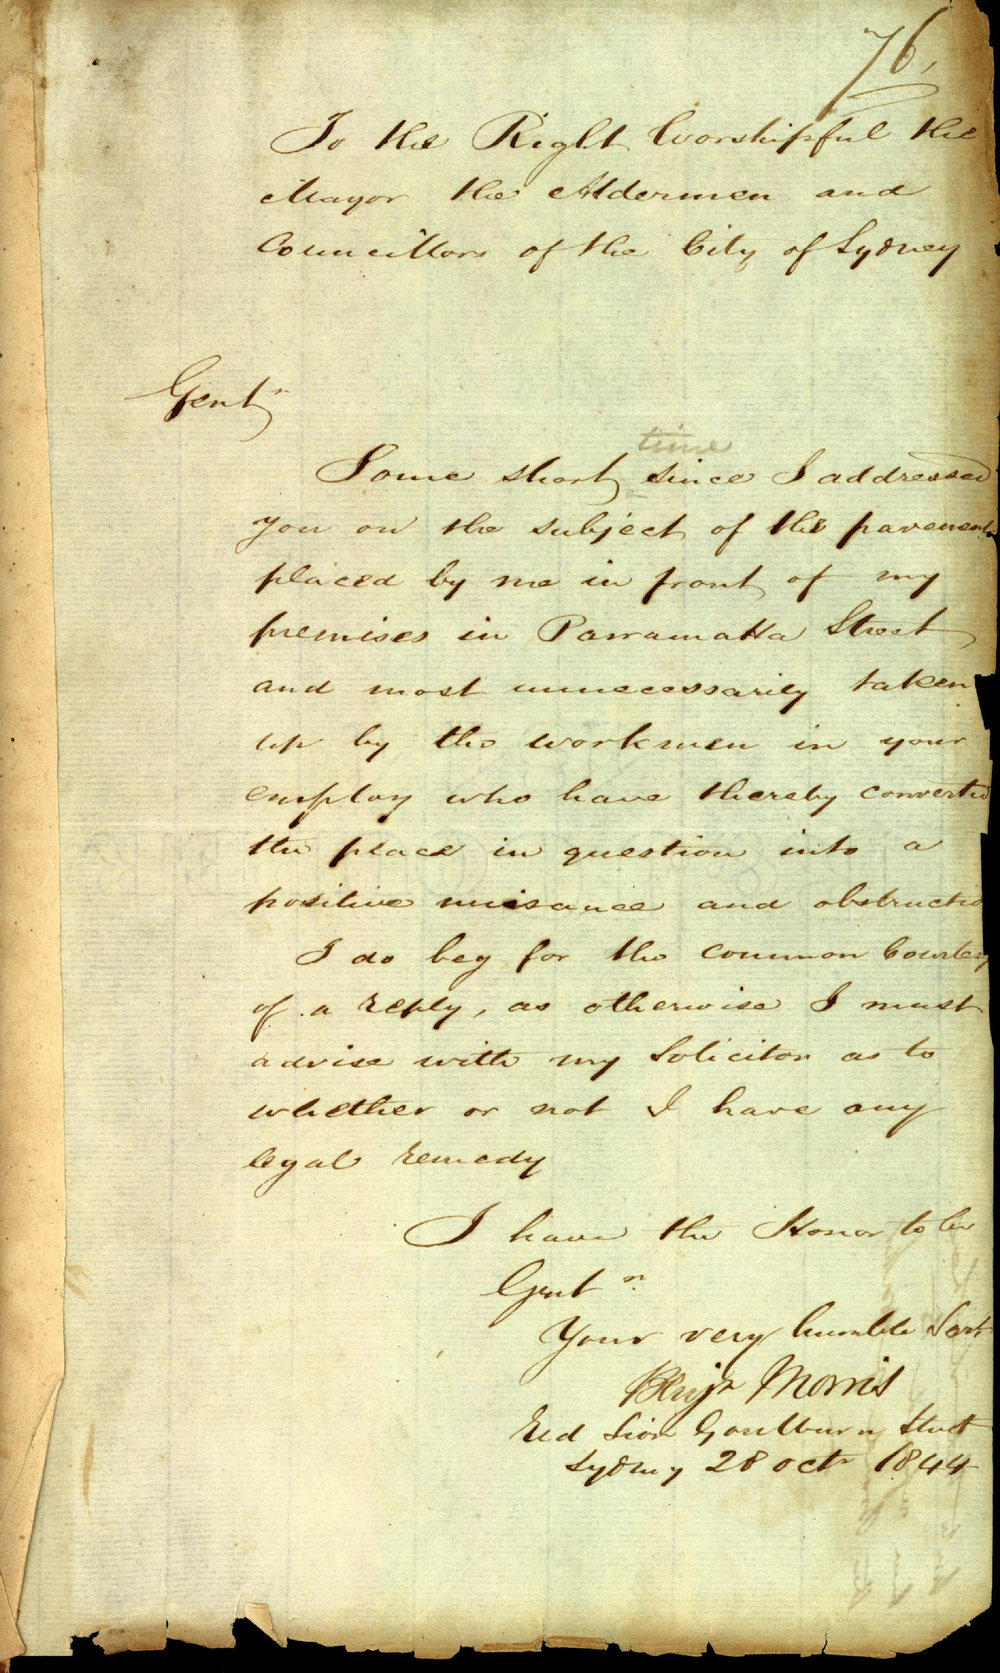 76,
To the Right Worshipful the
Mayor the Aldermen and
Councillors of the City of Sydney
Gentn
time
Some short since I addressed
you on the subject of the pavement
placed by me in front of my
premises in Parramatta Street
and most unnecessarily taken
up by the workmen in your
employ who have thereby converted
the place in question into a
positive nuisance and obstructio
I do beg for the common Courtesy
of a reply, as otherwise I must
advise with my Solicitor as to
whether or not I have any
legal remedy
I have the Honor to be
Gentn
Your very humble Servt
Benjn Morris
Red Lion Goulburn Street
Sydney 28 Octr 1844